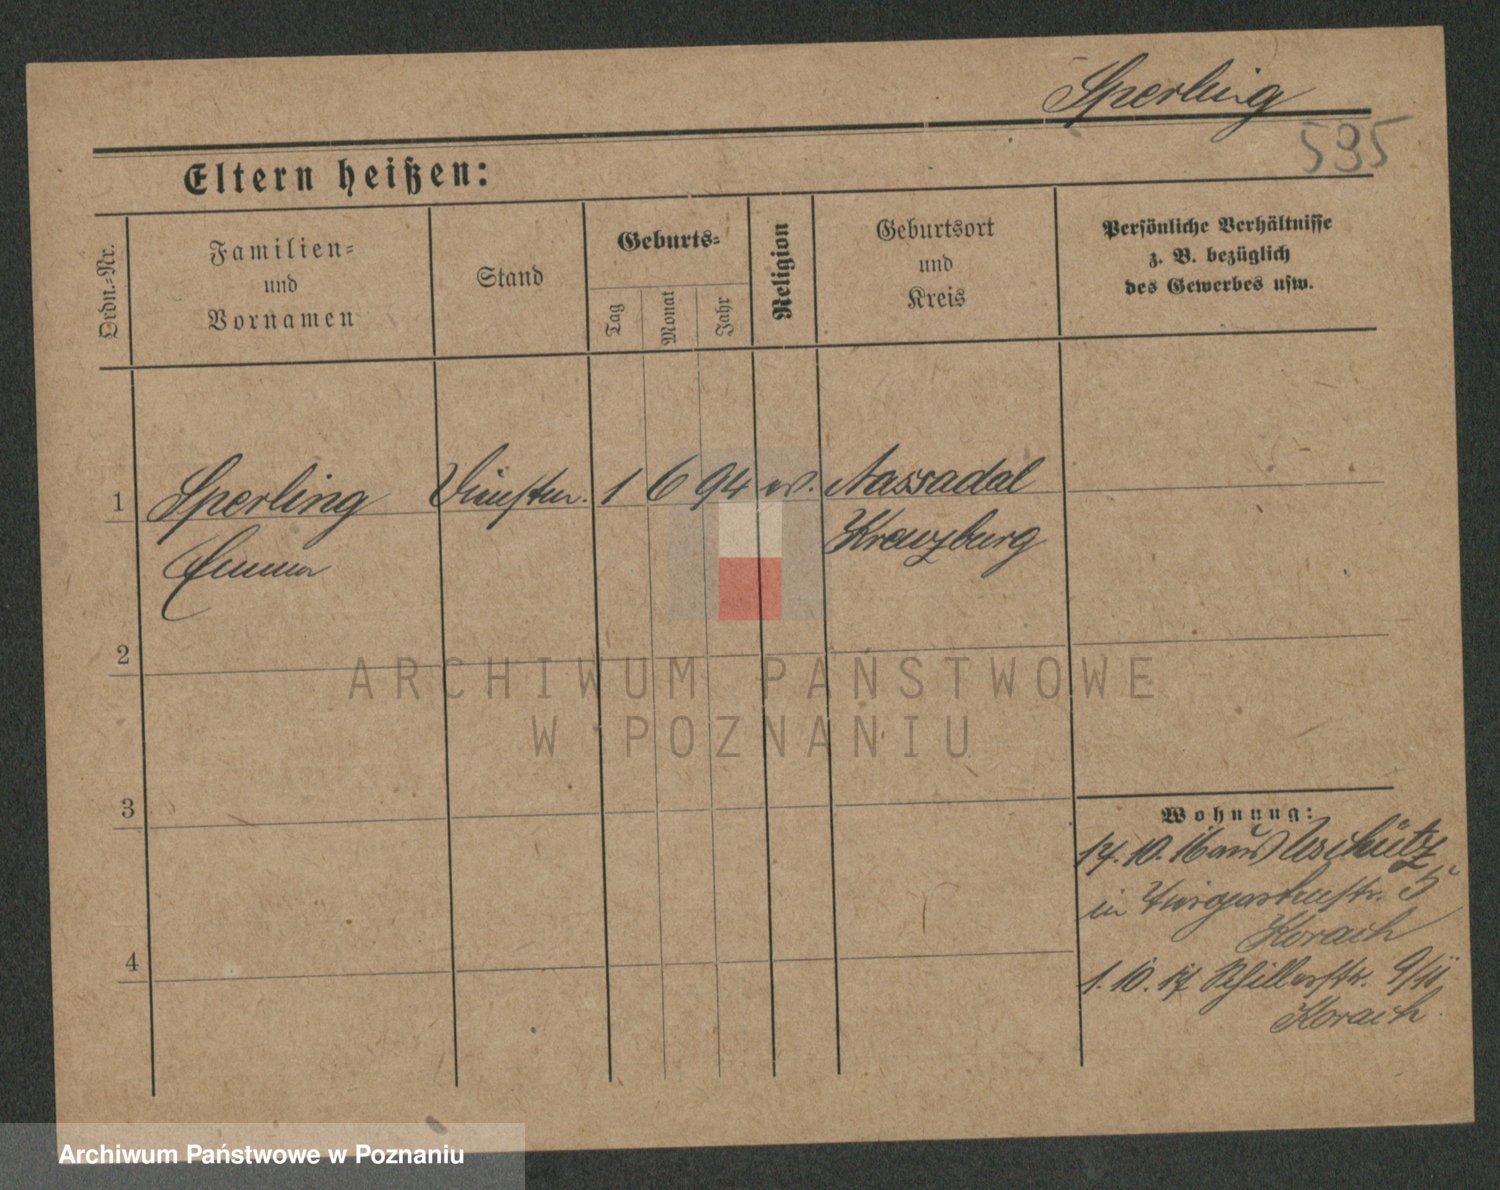 Sperling
595
Eltern heißen:
Ordn.-Nr.
Familien-
und
Vornamen
Stand
Geburts-
Tag
Monat
Jahr
Religion
Geburtsort
und
Kreis
Persönliche Verhältnisse
z. B. bezüglich
des Gewerbes usw.
1
Sperling
Emma
1 6 94 ev.
Nassadal
Kreuzburg
2
3
4
Wohnung:
14. 10. 16 aus
in 5
Korach
1. 10. 17 Schillerstr. 9/II
Korach
ARCHIWUM PAŃSTWOWE
W POZNANIU
Archiwum Państwowe w Poznaniu